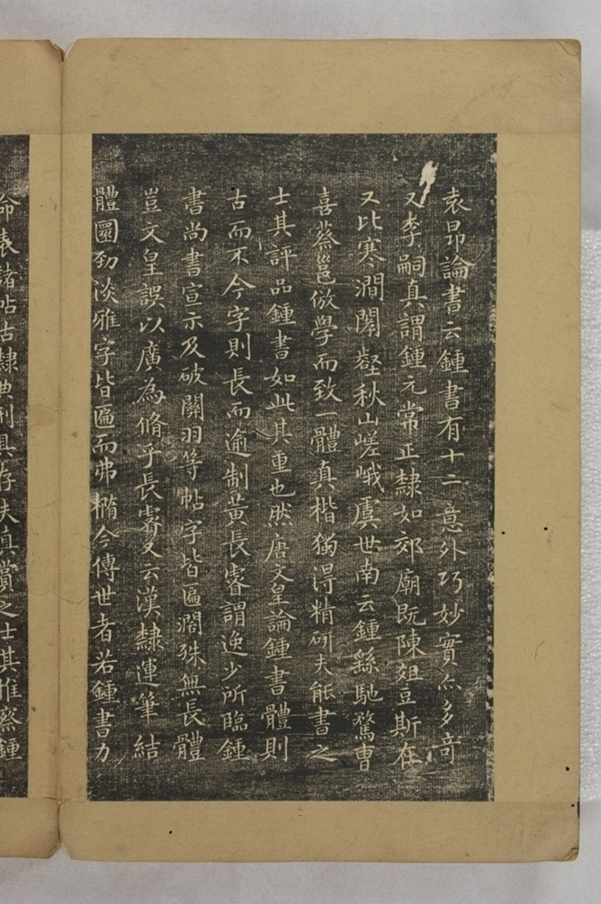 袁昂論書云鍾書有十二意外巧妙實亦多竒
又李嗣真謂鍾元常正隸如郊廟既陳俎豆斯在
又比寒澗閟壑秋山嵯峨虞世南云鍾繇馳騖曹
喜蔡邕倣學而致一體真楷獨得精研夫能書之
士其評品鍾書如此其重也然唐文皇論鍾書體則
古而不今字則長而逾制黃長睿謂逸少所臨鍾
書尚書宣示及破關羽等帖字皆匾濶殊無長體
豈文皇誤以廣為脩乎長睿又云漢隸運筆結
體圜勁淡雅字皆匾而弗橢今傳世者若鍾書力
命表諸帖古隸典刑具存夫真賞之士其惟察鍾